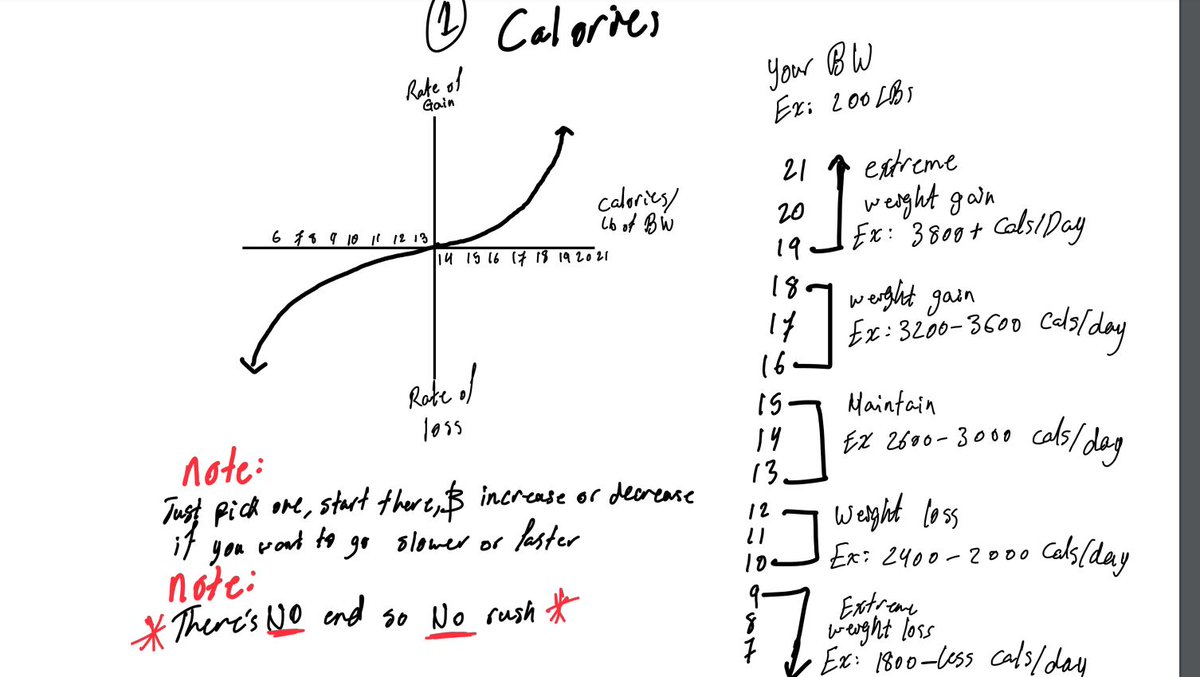 1 Calories
Rate of
Gain
6 7 8 9 10 11 12 13
14 15 16 17 18 19 20 21
calories/
lb of BW
Rate of
loss
note:
Just pick one, start there, & increase or decrease
if you want to go slower or faster
note:
*There's NO end so No rush*
Your BW
Ex: 200 LBs
21 extreme
20 weight gain
19 Ex: 3800+ Cals/Day
18 weight gain
17 Ex: 3200-3600 Cals/day
16
15 Maintain
14 Ex 2600-3000 cals/day
13
12 Weight loss
11
10 Ex: 2400-2000 Cals/day
9 Extreme
8 weight loss
7 Ex: 1800-less cals/day